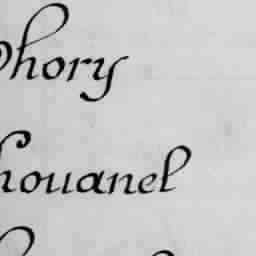 Phory
houanel